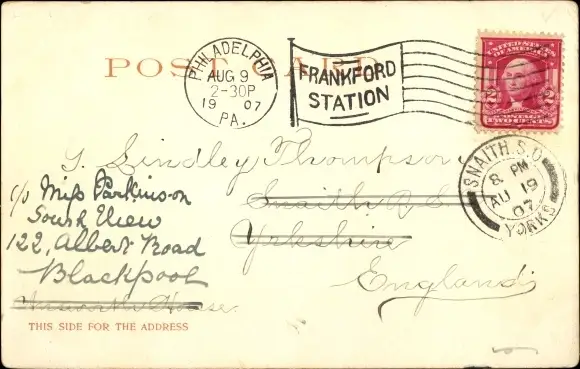 POST CARD
PHILADELPHIA
AUG 9
2-30P
19 07
PA.
FRANKFORD
STATION
UNITED STATES
OF AMERICA
2 2
POSTAGE
TWO CENTS
SNAITH.S.O
8 PM
AU 19
07
YORKS
Lindley Thompson
Snaith
Yorkshire
England
c/o Miss Parkinson
South View
122, Albert Road
Blackpool
House.
THIS SIDE FOR THE ADDRESS